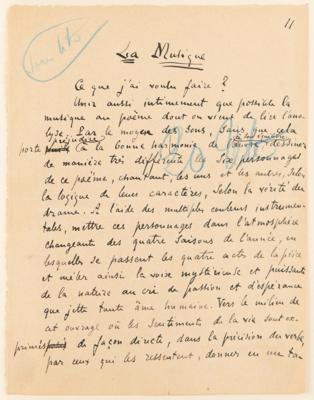 11
La Musique
Ce que j'ai voulu faire ?
Unir aussi intimement que possible la
musique au poème dont on vient de lire l'ana-
lyse. Par le moyen des sons, sans que cela
porte préjudice à la bonne harmonie de l'œuvre, dessiner
de manière très différente les six personnages
de ce poëme, chantant les uns et les autres, selon
la logique de leurs caractères, selon la vérité du
drame. A l'aide des multiples couleurs instrumen-
tales, mettre ces personnages dans l'atmosphère
changeante des quatre saisons de l'année, en
lesquelles se passent les quatre actes de la pièce
et mêler ainsi la voix mystérieuse et puissante
de la nature au cri de passion et d'espérance
que jette toute âme humaine. Vers le milieu de
cet ouvrage où les sentiments de la vie sont ex-
primés de façon directe, dans la précision du verbe,
par ceux qui les ressentent, donner en une